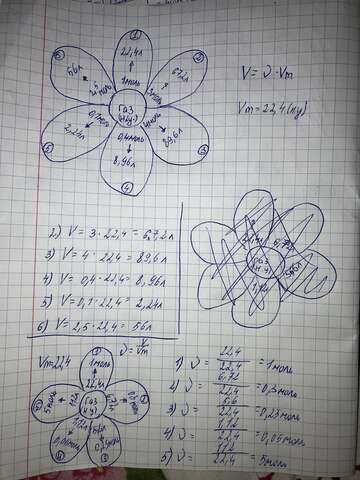 1
22,4л
1моль
2
672л
3моль
3
89,6л
4моль
4
8,96л
0,4моль
5
2,24л
0,1моль
6
56л
2,5моль
Газ
(н.у.)
V = ν · Vm
Vm = 22,4 (н.у)
2) V = 3 · 22,4 = 6,72л
3) V = 4 · 22,4 = 89,6л
4) V = 0,4 · 22,4 = 8,96л
5) V = 0,1 · 22,4 = 2,24л
6) V = 2,5 · 22,4 = 56л
22,4л
6,72
Газ
(н.у)
1,12
Vm=22,4
ν = V/Vm
1моль
22,4л
Газ
(н.у)
5моль
112
0,05моль
1,12л
0,25моль
1) ν = 22,4/22,4 = 1моль
2) ν = 6,72/22,4 = 0,3моль
3) ν = 5,6/22,4 = 0,25моль
4) ν = 1,12/22,4 = 0,05моль
5) ν = 112/22,4 = 5моль